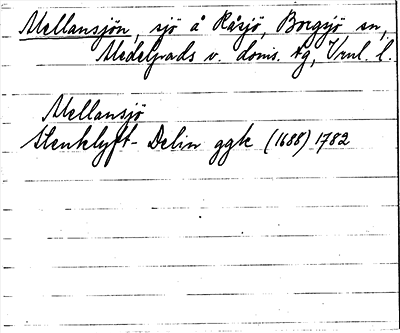 Mellansjön, sjö å Råsjö, Borgsjö sn,
Medelpads v. doms. tg, Vrnl. l.
Mellansjö
Stenklyft- Delin ggk (1688) 1782